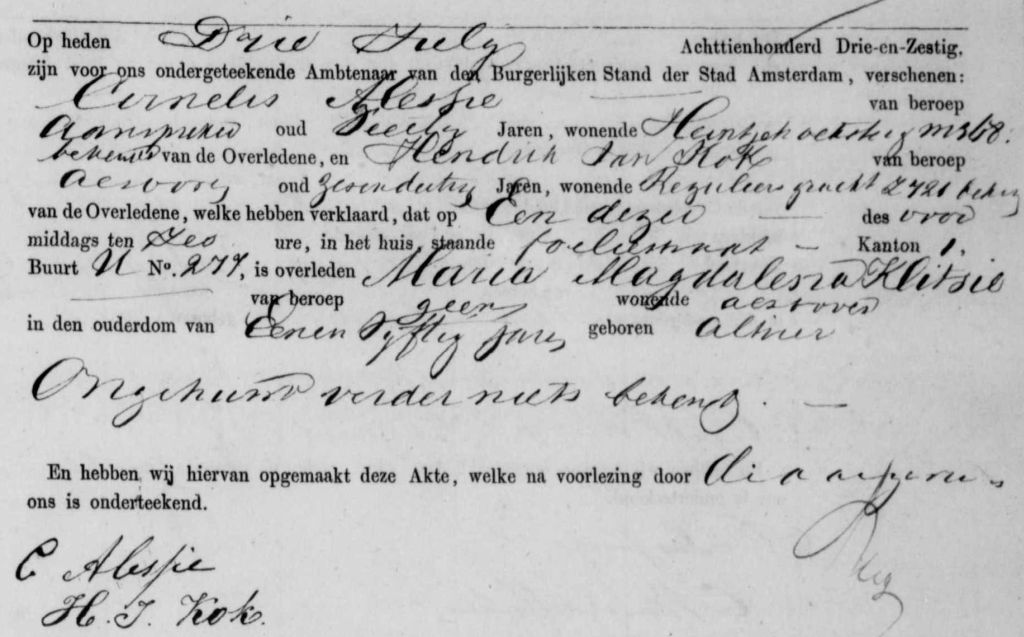 Op heden Drie July Achttienhonderd Drie-en-Zestig,
zijn voor ons ondergeteekende Ambtenaar van den Burgerlijken Stand der Stad Amsterdam, verschenen:
Cornelis Alessie van beroep
Aanspreker oud Jaren, wonende Heintjehoeksteeg M 368.
bekende van de Overledene, en Hendrik Jan Kok van beroep
als voorn oud zesendertig Jaren, wonende Reguliersgracht Z 721 beken
van de Overledene, welke hebben verklaard, dat op Een dezer des voor
middags ten Zes ure, in het huis, staande Foeliestraat Kanton 1.
Buurt U No. 277, is overleden Maria Magdalena Klitsie
van beroep geen wonende aldaar
in den ouderdom van Eenen Vyftig jaren geboren alhier
Ongehuwd verder niets bekend.
En hebben wij hiervan opgemaakt deze Akte, welke na voorlezing door die aangevers
ons is onderteekend.
C Alessie
H. J. Kok.